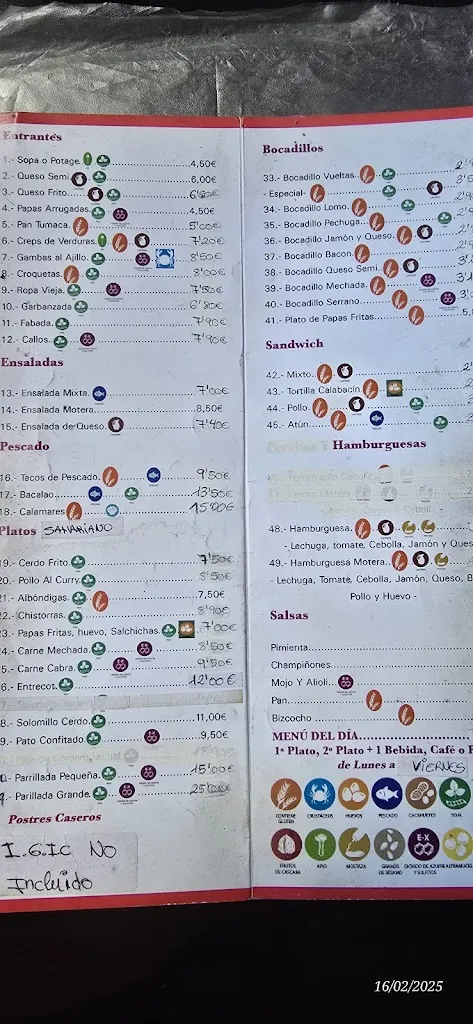 Entrantes
1.- Sopa o Potage 4,50€
2.- Queso Semi 6,00€
3.- Queso Frito
4.- Papas Arrugadas 4,50€
5.- Pan Tumaca 5'00€
6.- Creps de Verduras 7'20€
7.- Gambas al Ajillo 8'50€
8.- Croquetas 8'00€
9.- Ropa Vieja 7'50€
10.- Garbanzada 6'80€
11.- Fabada 7'90€
12.- Callos 7'90€
Ensaladas
13.- Ensalada Mixta 7'00€
14.- Ensalada Motera 8,50€
15.- Ensalada de Queso 7'40€
Pescado
16.- Tacos de Pescado 9'50€
17.- Bacalao 13'50€
18.- Calamares 15'00€
Platos SAMARIANO
19.- Cerdo Frito 7'50€
20.- Pollo Al Curry 8'50€
21.- Albóndigas 7,50€
22.- Chistorras 8'90€
23.- Papas Fritas, huevo, Salchichas 7'00€
24.- Carne Mechada 8'50€
25.- Carne Cabra 9'50€
26.- Entrecot 12'00€
28.- Solomillo Cerdo 11,00€
29.- Pato Confitado 9,50€
Parrillada Pequeña 15'00€
Parillada Grande 25'00€
Postres Caseros
I.G.IC NO
Incluido
Bocadillos
33.- Bocadillo Vueltas
- Especial-
34.- Bocadillo Lomo
35.- Bocadillo Pechuga
36.- Bocadillo Jamón y Queso
37.- Bocadillo Bacon
38.- Bocadillo Queso Semi
39.- Bocadillo Mechada
40.- Bocadillo Serrano
41.- Plato de Papas Fritas
Sandwich
42.- Mixto
43.- Tortilla Calabacín
44.- Pollo
45.- Atún
Perritos Y Hamburguesas
48.- Hamburguesa
- Lechuga, tomate, Cebolla, Jamón y Ques
49.- Hamburguesa Motera
- Lechuga, Tomate, Cebolla, Jamón, Queso, B
Pollo y Huevo -
Salsas
Pimienta
Champiñones
Mojo Y Alioli
Pan
Bizcocho
MENÚ DEL DÍA
1ª Plato, 2º Plato + 1 Bebida, Café o
de Lunes a VIERNES
CONTIENE GLUTEN CRUSTÁCEOS HUEVOS PESCADO CACAHUETES SOJA
FRUTOS DE CÁSCARA APIO MOSTAZA GRANOS DE SÉSAMO DIÓXIDO DE AZUFRE Y SULFITOS ALTRAMUCES
16/02/2025